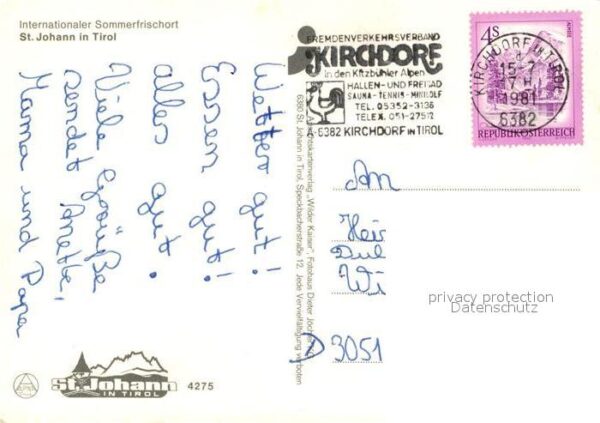 Internationaler Sommerfrischort
St. Johann in Tirol
Wetter gut!
Essen gut!
alles gut.
Viele Grüße
sendet Anette,
Mama und Papa
FREMDENVERKEHRSVERBAND
KIRCHDORF
in den Kitzbühler Alpen
HALLEN- UND FREIBAD
SAUNA - TENNIS - MINIGOLF
TEL. 05352-3136
TELEX. 051-27512
A-6382 KIRCHDORF IN TIROL
4S
AHRE
REPUBLIK ÖSTERREICH
KIRCHDORF in TIROL
1981
6382
6380 St. Johann in Tirol, Speckbacherstraße 12. Jede Vervielfältigung verboten
Ansichtskartenverlag „Wilder Kaiser", Fotohaus Dieter
An
Wi
D 3051
privacy protection
Datenschutz
St. Johann
IN TIROL
4275